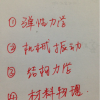 ① 弹性力学
② 机械振动
③ 结构力学
④ 材料物理